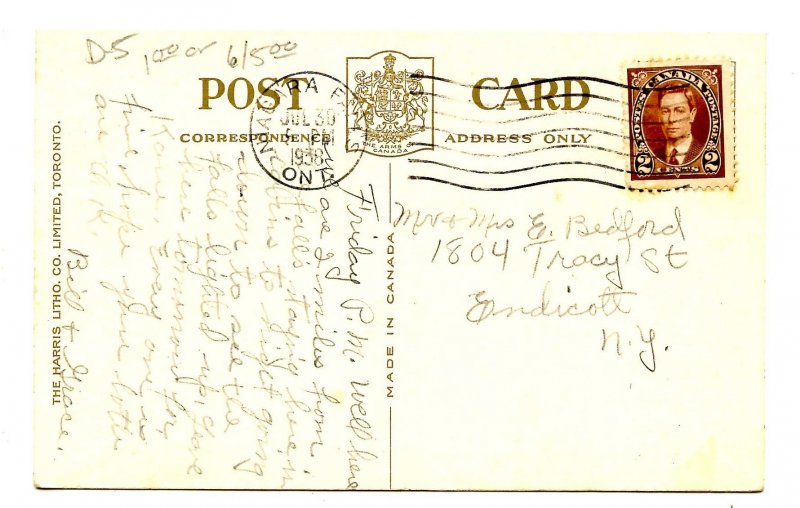 D-5 1.00 or 6/5.00
POST CARD
CORRESPONDENCE
ADDRESS ONLY
THE ARMS OF
CANADA
NIAGARA FALLS
JUL 30
PM
1938
ONT
POSTES CANADA POSTAGE
2 CENTS 2
Friday P.M. Well here
are 2 miles from
falls staying here in
to night going
down to see the
falls lighted up, leave
here tomorrow for
Home. Every one is
fine hope you both
are O.K.
Bill & Grace.
Mr & Mrs E. Bedford
1804 Tracy St
Endicott
N.Y.
MADE IN CANADA
THE HARRIS LITHO. CO. LIMITED, TORONTO.